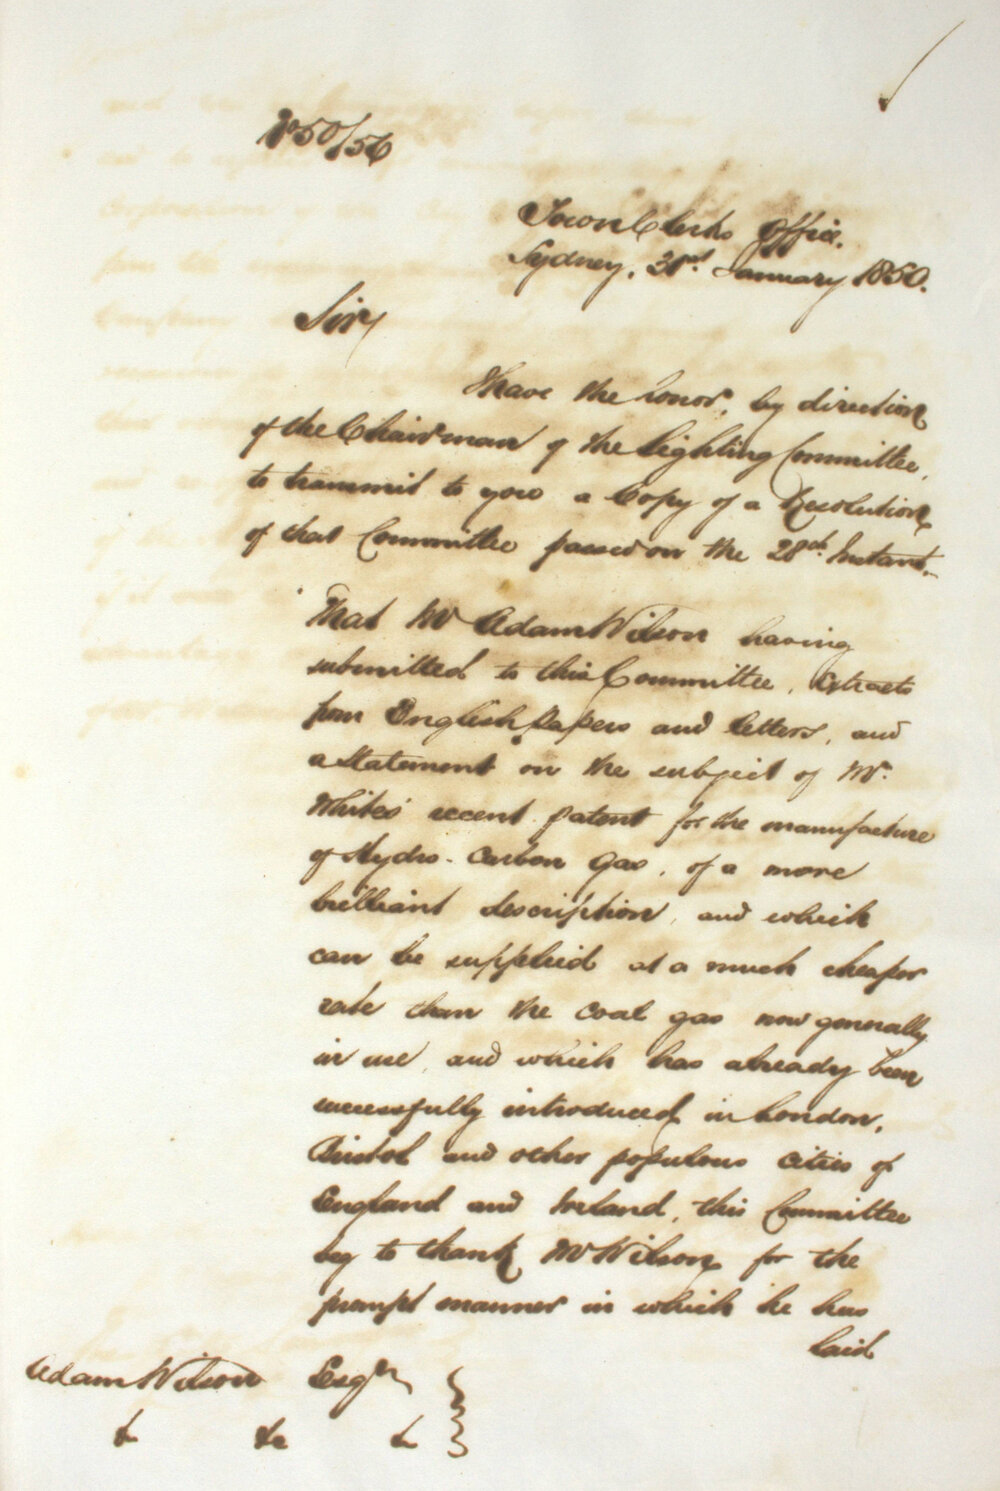 No 50/56
Town Clerks Office.
Sydney, 31st. January 1850.
Sir,
I have the honor, by direction
of the Chairman of the Lighting Committee,
to transmit to you a Copy of a Resolution
of that Committee passed on the 28th. Instant.
That Mr Adam Wilson having
submitted to this Committee, Extracts
from English Papers and letters, and
a Statement on the subject of Mr.
White's recent patent for the manufacture
of Hydro-Carbon Gas, of a more
brilliant description, and which
can be supplied at a much cheaper
rate than the coal gas now generally
in use, and which has already been
successfully introduced in London,
Bristol and other populous cities of
England and Ireland, this Committee
beg to thank Mr Wilson for the
prompt manner in which he has
laid
Adam Wilson Esqr
&c &c &c